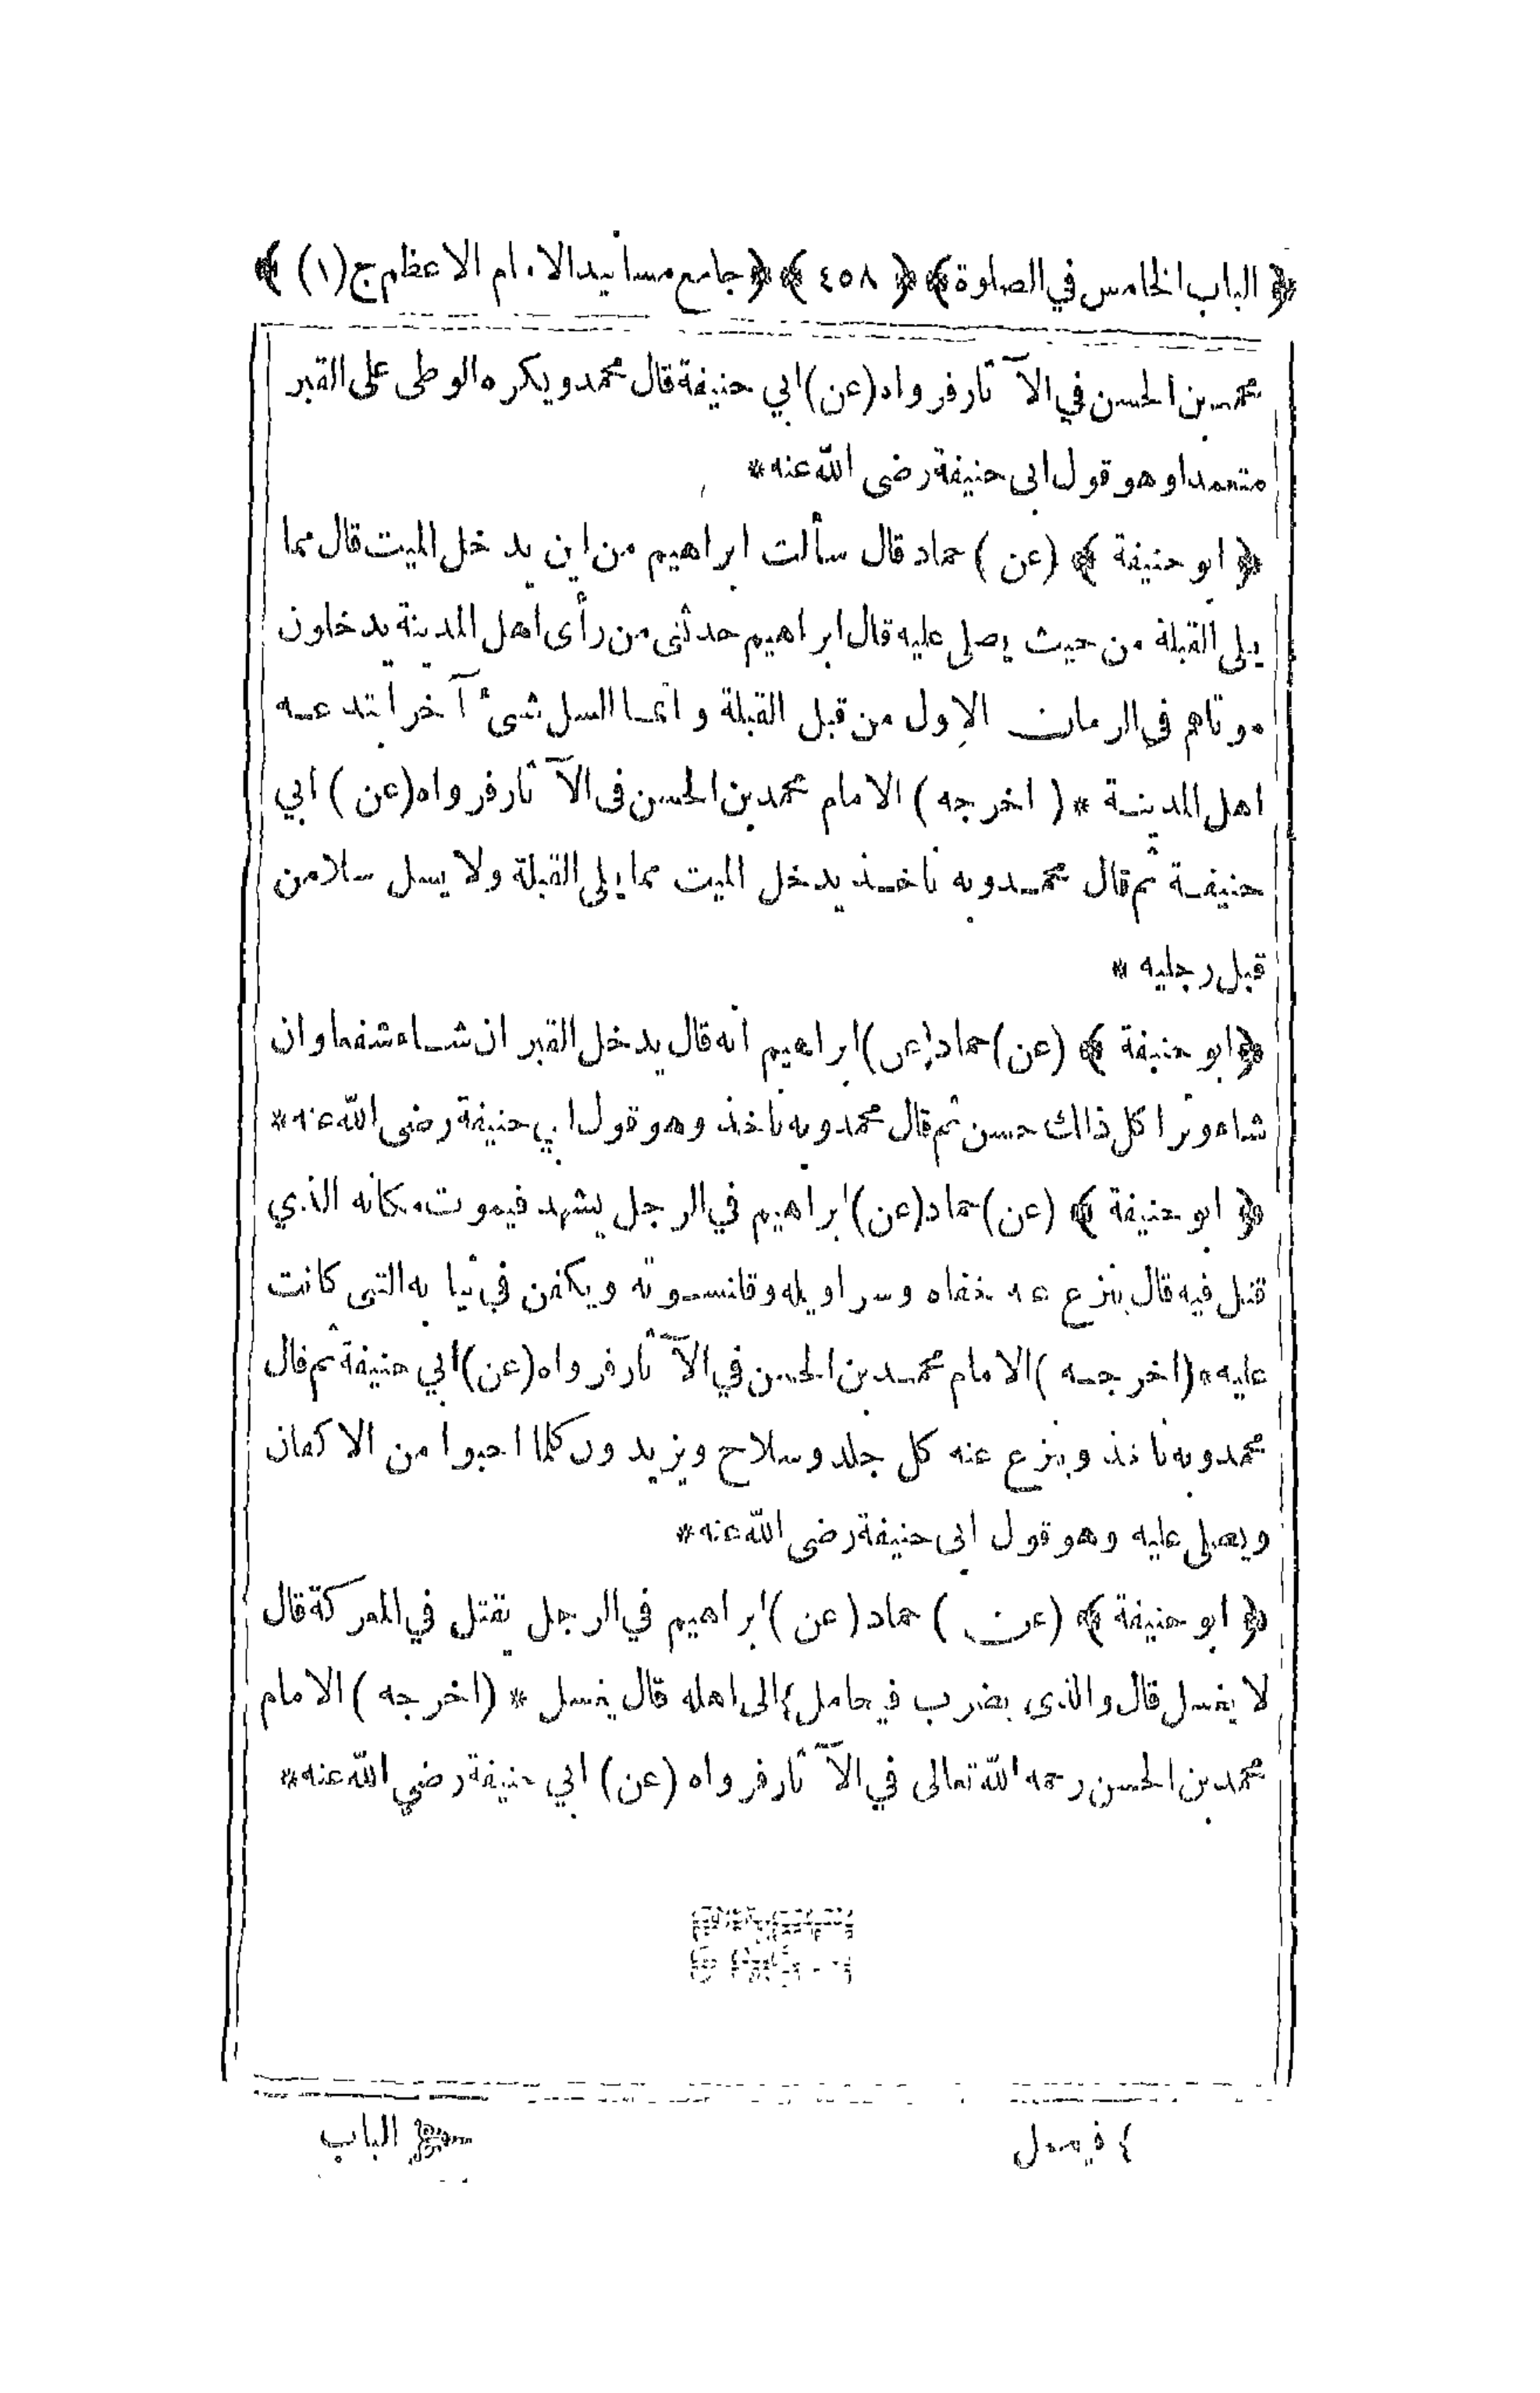 ﴿ الباب الخامس في الصلوة ﴾ ﴿ ٤٥٨ ﴾ ﴿ جامع مسانيد الامام الاعظم ج (١) ﴾
محمد بن الحسن في الآثار فرواه (عن) ابي حنيفة قال محمد ويكره الوطى على القبر
متعمدا وهو قول ابى حنيفة رضى الله عنه *
﴿ ابو حنيفة ﴾ (عن) حماد قال سألت ابراهيم من اين يدخل الميت قال مما
يلى القبلة من حيث يصلى عليه قال ابراهيم حدثنى من رأى اهل المدينة يدخلون
موتاهم فى الزمان الاول من قبل القبلة وانما السل شئ آخر ابتدعه
اهل المدينة * (اخرجه) الامام محمد بن الحسن فى الآثار فرواه (عن) ابي
حنيفة ثم قال محمد وبه نأخذ يدخل الميت مما يلى القبلة ولا يسل سلا من
قبل رجليه *
﴿ ابو حنيفة ﴾ (عن) حماد (عن) ابراهيم انه قال يدخل القبر ان شاء شفعا وان
شاء وترا كل ذالك حسن ثم قال محمد وبه نأخذ وهو قول ابي حنيفة رضى الله عنه *
﴿ ابو حنيفة ﴾ (عن) حماد (عن) ابراهيم في الرجل يشهد فيموت مكانه الذي
قتل فيه قال ينزع عنه خفاه وسراويله وقلنسوته ويكفن في ثيابه التى كانت
عليه * (اخرجه) الامام محمد بن الحسن في الآثار فرواه (عن) ابي حنيفة ثم قال
محمد وبه نأخذ وينزع عنه كل جلد وسلاح ويزيدون كلما احبوا من الاكفان
ويصلى عليه وهو قول ابى حنيفة رضى الله عنه *
﴿ ابو حنيفة ﴾ (عن) حماد (عن) ابراهيم في الرجل يقتل في المعركة قال
لا يغسل قال والذى يضرب فيحامل ٤ الى اهله قال يغسل * (اخرجه) الامام
محمد بن الحسن رحمه الله تعالى في الآثار فرواه (عن) ابي حنيفة رضي الله عنه *
٤ فيحمل
الباب